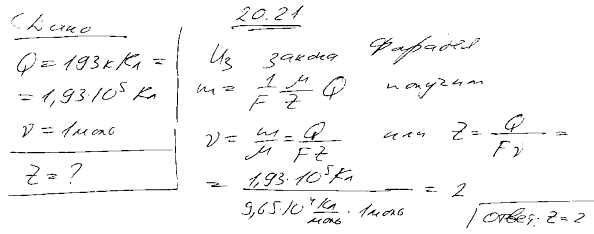 20.21
Дано
Q = 193 кКл =
= 1,93·10⁵ Кл
ν = 1 моль
Z = ?
Из закона Фарадея
m = 1/F μ/Z Q получим
ν = m/μ = Q/FZ или Z = Q/Fν =
= 1,93·10⁵ Кл / 9,65·10⁴ Кл/моль · 1 моль = 2
Ответ: Z = 2